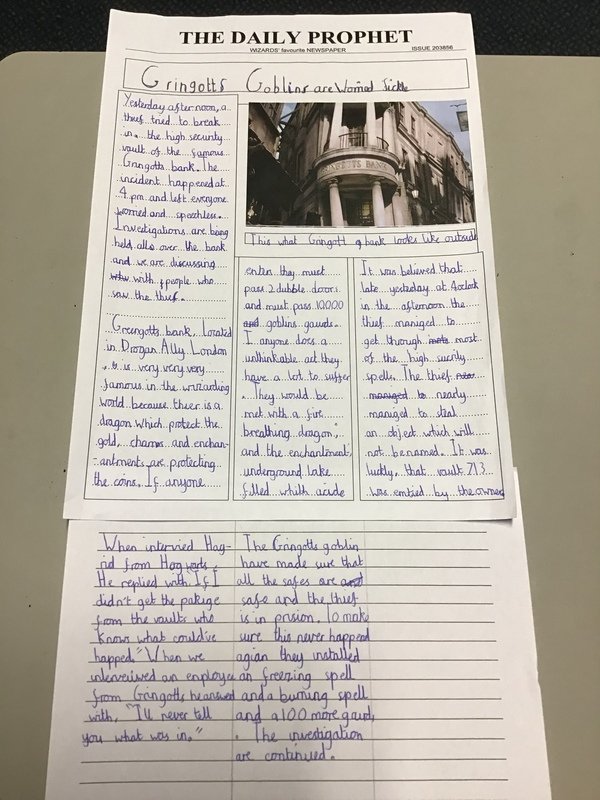 THE DAILY PROPHET
WIZARDS' favourite NEWSPAPER
ISSUE 203856
Gringotts Goblins are Worried Sickle
Yesterday afternoon, a
thief tried to break
in the high security
vault of the famous
Gringott bank. The
incident happened at
4 pm and left everyone
worried and speechless.
Investigations are being
held all over the bank
and we are discussing
with people who
saw the thief.
Greengotts bank, located
in Drogan Ally London
is very very very
famous in the wizarding
world because theer is a
dragon which protect the
gold, charms and enchan-
-antments are protecting
the coins. If anyone
GRINGOTTS BANK
This what Gringott's bank looks like outside
enters they must
pass 2 dubble doors
and must pass 10000
and goblins gaurds.
I anyone does a
unthinkable act they
have a lot to suffer
. They would be
met with a fire
breathing dragon,
and the enchantment,
underground lake
filled whith acide
It was believed that
late yesterday at 4oclock
in the afternoon the
thief maniged to
get through most
of the high sucrity
spells. The thief
maniged to nearly
maniged to steal
an object which will
not be named. It was
luckly that vault 713
was emtied by the owner
When intervied Hag-
rid from Hogwarts.
He replied with "If I
didn't get the pakige
from the vaults who
knows what could've
happed." When we
interveiwed an employe
from Gringotts he answerd
with, "I'll never tell
you what was in."
The Gringotts goblin
have made sure that
all the safes are and
safe and the thief
is in prision. To make
sure this never happend
agian they installed
an freezing spell
and a burning spell
and a 100 more gaurd,
. The investigation
are continued.